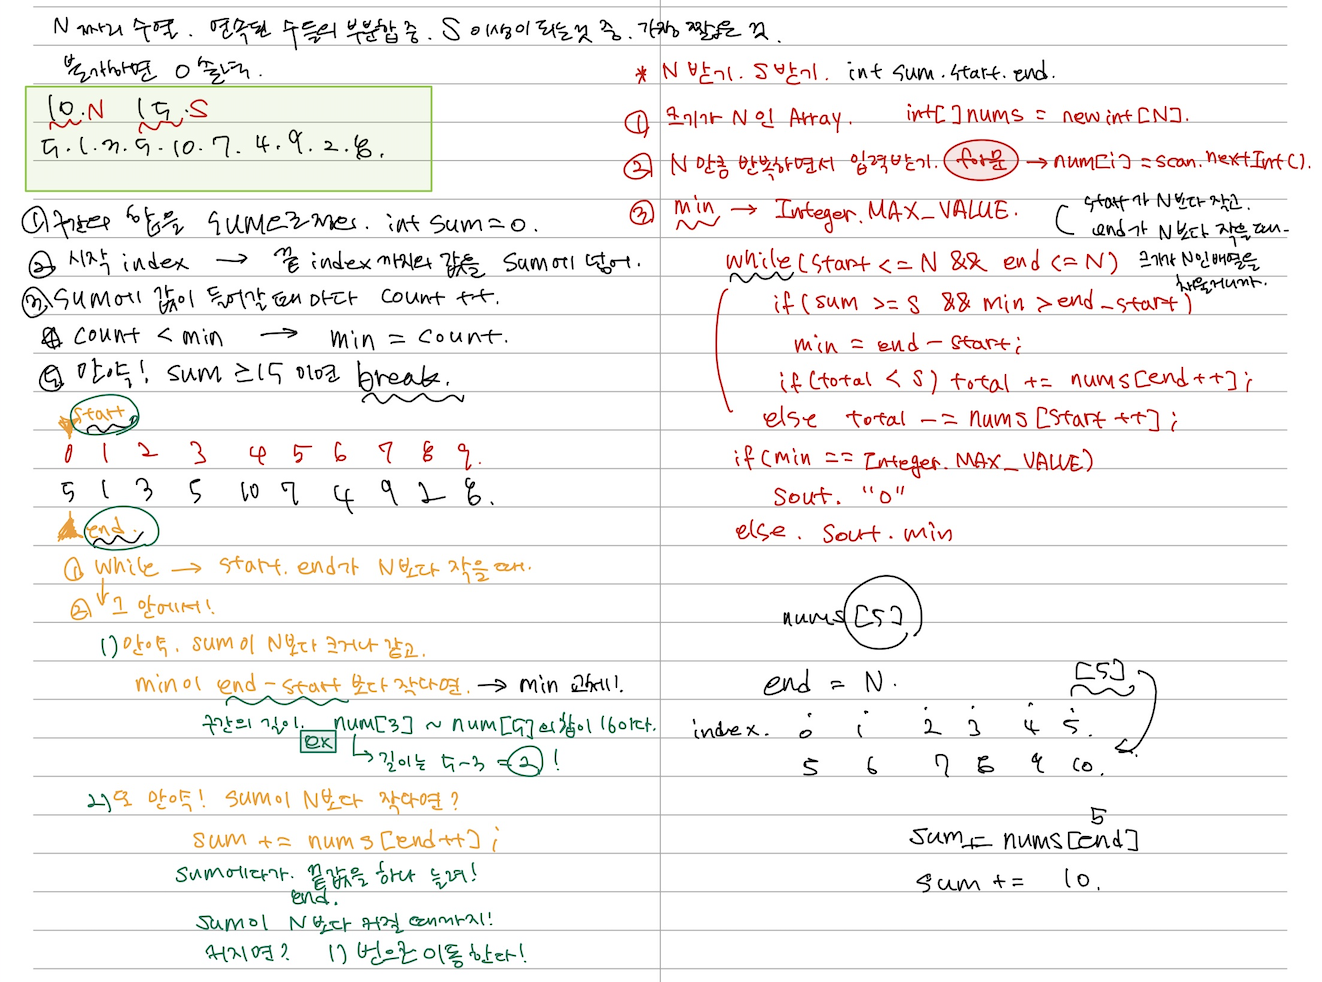 N 짜리 수열. 연속된 수들의 부분합 중. S 이상이 되는 것 중. 가장 짧은 것.
불가하면 0 출력.
10.N 15.S
5.1.3.5.10.7.4.9.2.8.
① 구간의 합을 sum으로 int sum=0.
② 시작 index → 끝 index까지의 값을 sum에 넣어.
③ sum에 값이 들어갈 때마다 count ++.
④ count < min → min = count.
⑤ 만약! sum ≥15 이면 break.
start
0 1 2 3 4 5 6 7 8 9.
5 1 3 5 10 7 4 9 2 8.
end.
① while → start. end가 N보다 작을 때.
② 그 안에서!
1) 만약. sum이 N보다 크거나 같고.
min이 end-start 보다 작다면. → min 교체!.
구간의 길이. num[3] ~ num[5]의 합이 16이다.
ex
길이는 5-3 = 2 !
2) 또 만약! sum이 N보다 작다면?
sum += nums[end++];
sum에다가. 끝값을 하나 늘려!
end.
sum이 N보다 커질 때까지!
커지면? 1) 번으로 이동한다!
* N 받기. S 받기. int sum.start.end.
① 크기가 N인 Array. int[]nums = new int[N].
② N 만큼 반복하면서 입력받기. for문 → num[i] = scan.nextInt().
③ min → Integer.MAX_VALUE.
start가 N보다 작고.
end가 N보다 작을 때-
크기가 N인 배열을
채울거니까.
while(start <= N && end <= N)
if(sum >= S && min > end-start)
min = end-start;
if(total < S) total += nums[end++];
else total -= nums[start++];
if(min == Integer.MAX_VALUE)
sout. "0"
else. sout.min
nums[5]
end = N.
[5]
index. 0 1 2 3 4 5.
5 6 7 8 9 10.
5
sum += nums[end]
sum += 10.